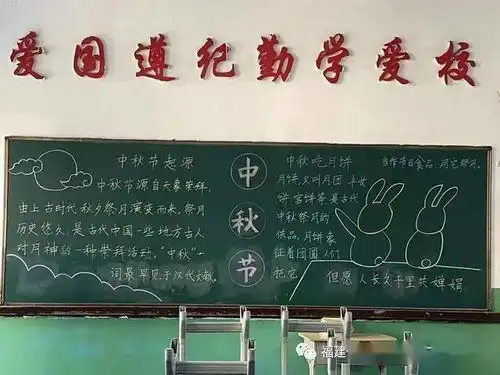 爱国遵纪勤学爱校
中秋节起源
中秋节源自天象崇拜,
由上古时代秋夕祭月演变而来。祭月
历史悠久,是古代中国一些地方古人
对月神的一种崇拜活动,“中秋”一
词最早见于汉代文献。
中
秋
节
中秋吃月饼
月饼,又叫月团、丰收
饼、宫饼等,是古代
中秋祭月的
供品,月饼象
征着团圆,人们
把它
当作节日食品,用它祭月、
但愿人长久千里共婵娟
福建